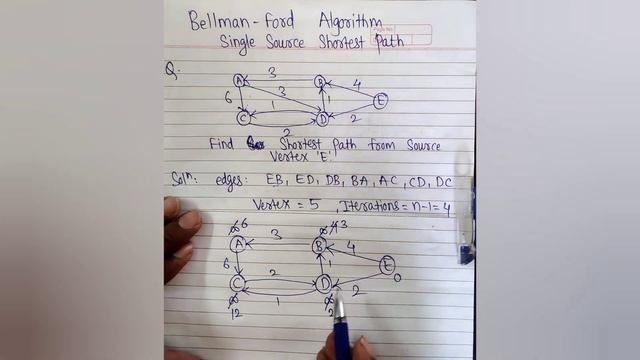 Bellman-Ford Algorithm
Single Source Shortest Path
Q.
A 3 B 4 E
6 3 1 1 2
C 2 D
Find Shortest Path from Source
Vertex 'E'.
Solⁿ: edges: EB, ED, DB, BA, AC, CD, DC
Vertex = 5, Iterations = n-1=4
∞ 6 ∞ 4 3
A 3 B 4 E
6 2 1 0
C 1 D 2
∞ ∞
12 2